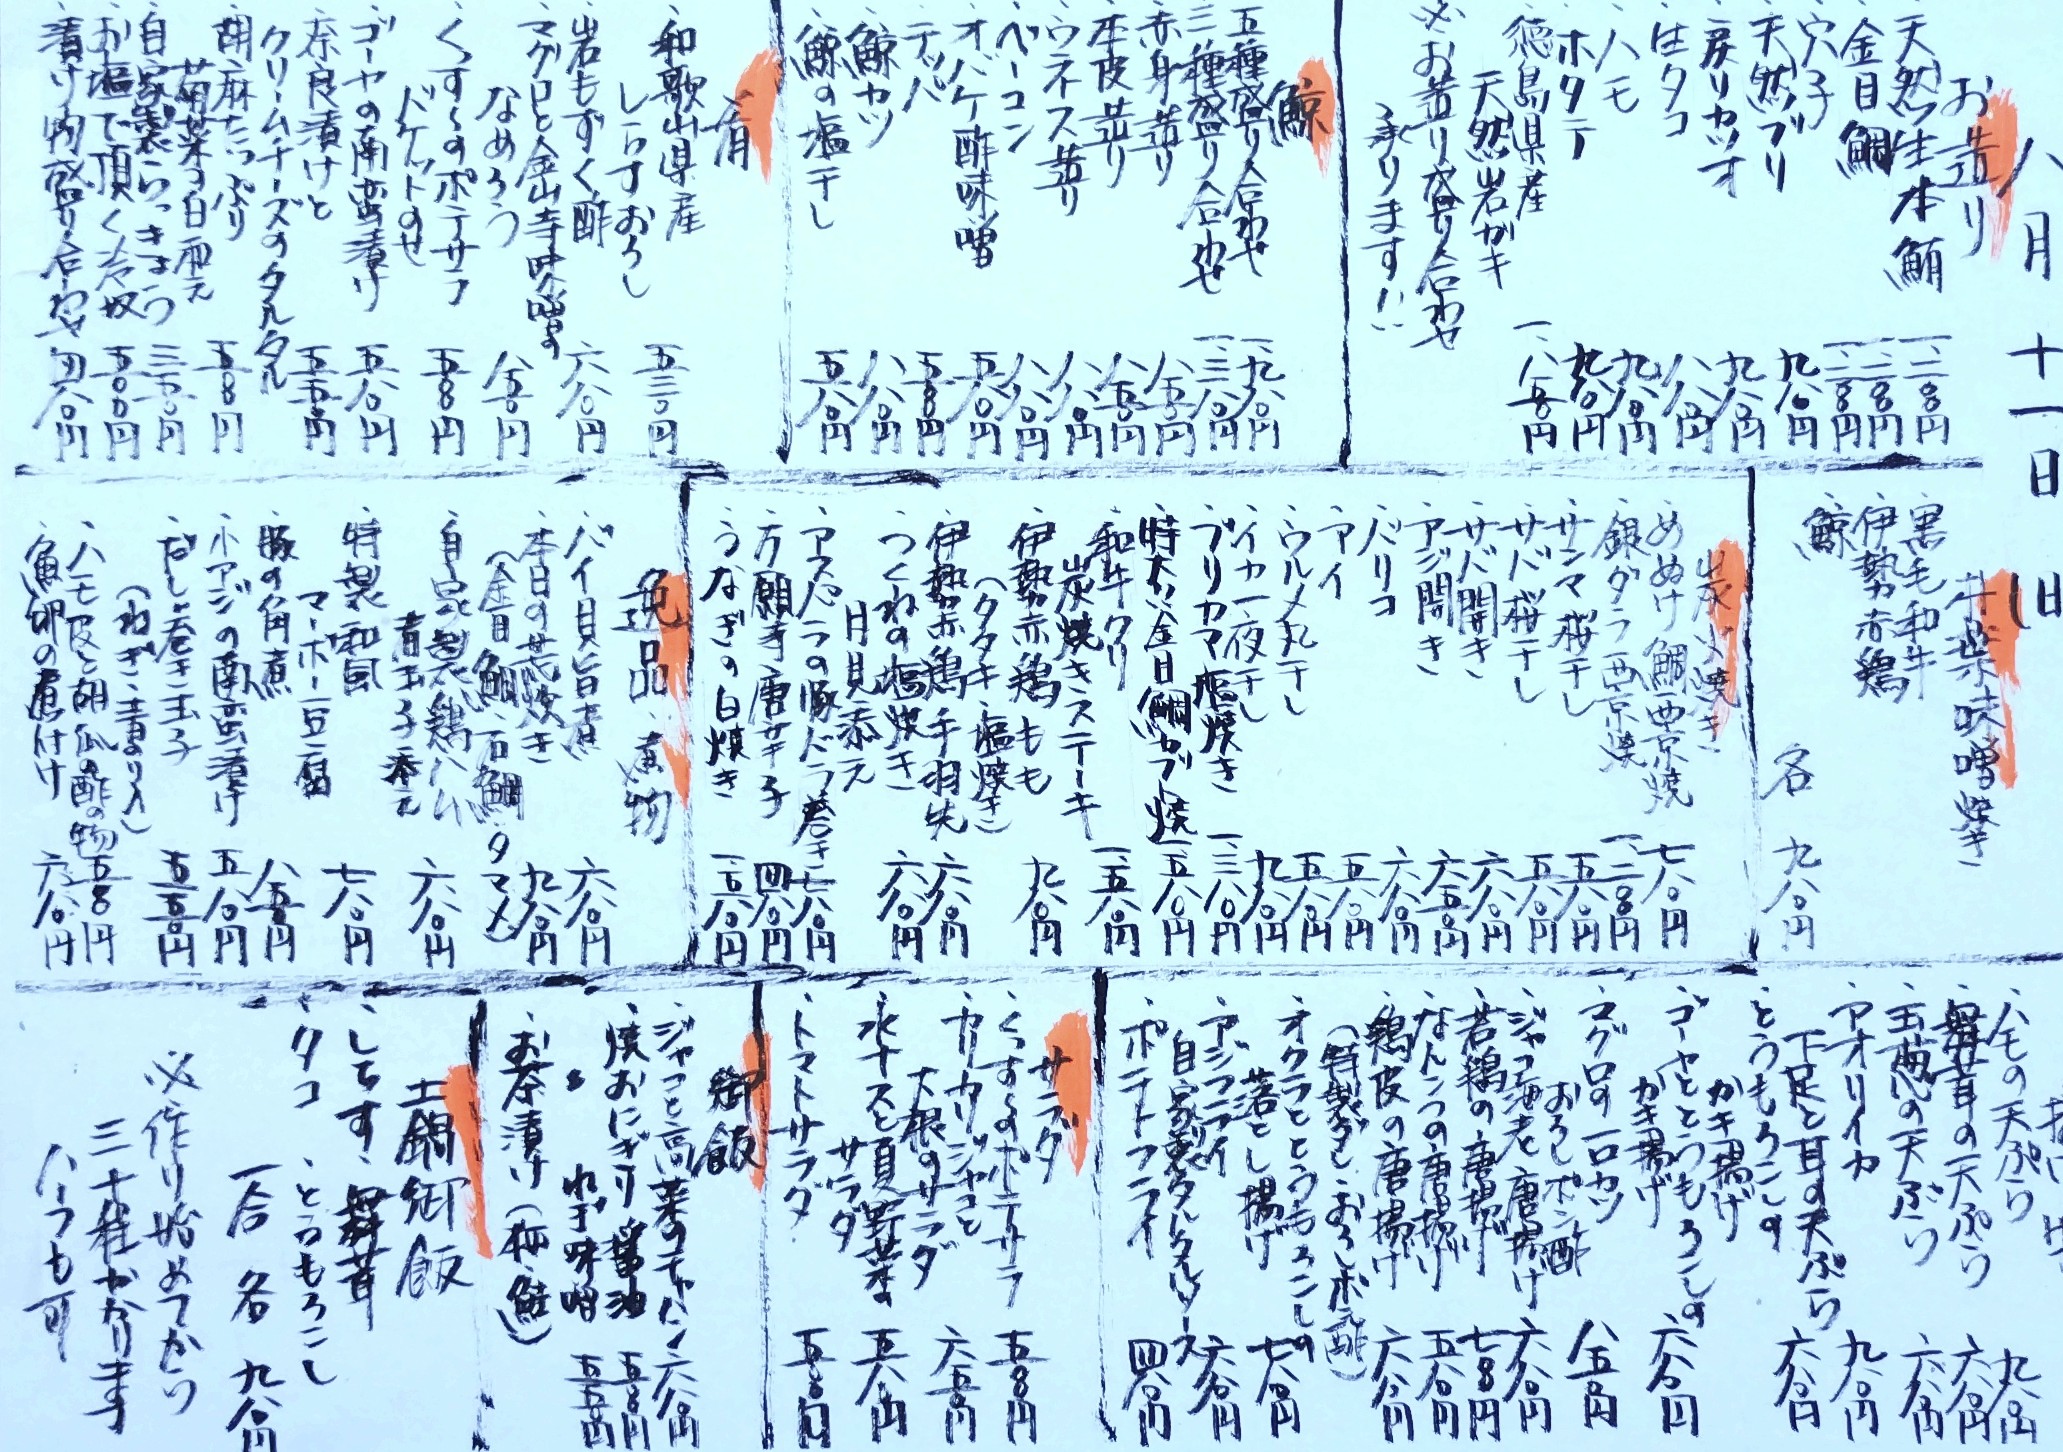 八月十一日
お造り
・天然生本鮪
・金目鯛
・穴子
・天然ブリ
・戻りカツオ
・生タコ
・ハモ
・ホタテ
・徳島県産
天然岩がキ 一、八五〇円
※お造り盛り合わせ
承ります!!
鯨
・五種盛り合わせ 一、九八〇円
・三種盛り合わせ 一、三八〇円
・赤身造り 八五〇円
・本皮造り 八五〇円
・ウネス造り 八八〇円
・ベーコン 八八〇円
・オバケ酢味噌 五八〇円
・テッパ 五八〇円
・鯨カツ 八八〇円
・鯨の塩干し 五八〇円
肴
・和歌山県産
しらすおろし 五三〇円
・岩もずく酢 六八〇円
・マグロと金山寺味噌の
なめろう
バケットのせ 八五〇円
・くすくすのポテサラ 五五〇円
・ゴーヤの南蛮漬け 五八〇円
・奈良漬けと
クリームチーズのタルタル 五五〇円
・胡麻たっぷり
菊菜の白和え 五五〇円
・自家製らっきょう 三五〇円
・お塩で頂く冷奴 五〇〇円
・漬け物盛り合わせ 四八〇円
朴葉味噌焼き
・黒毛和牛
・伊勢赤鶏
・鯨
各 九八〇円
炭火焼き
・めぬけ鯛西京焼 七八〇円
・銀ダラ西京焼
・サンマ桜干し 五八〇円
・サバ桜干し 五八〇円
・サバ開き 六八〇円
・アジ開き 六五〇円
・バリコ 六八〇円
・アイ 五八〇円
・ウルメ丸干し 五八〇円
・イカ一夜干し 九八〇円
・ブリカマ塩焼き 一、三八〇円
・特大金目鯛カブト焼 一、五八〇円
・和牛クリ
炭焼きステーキ 一、五八〇円
・伊勢赤鶏もも
(タタキ・塩焼き) 九八〇円
・伊勢赤鶏手羽先 六八〇円
・つくねの塩焼き
月見添え 六八〇円
・アスパラの豚バラ巻き 七八〇円
・万願寺唐辛子 四八〇円
・うなぎの白焼き 一、五八〇円
逸品・煮物
・バイ貝旨煮 六八〇円
・本日の荒炊き
(金目鯛・石鯛・タマメ) 九八〇円
・自家製鶏ハム
青玉子添え 六八〇円
・特製和風
マーボー豆腐 七八〇円
・豚の角煮 八五〇円
・小アジの南蛮漬け 五八〇円
・だし巻き玉子
(ねぎ・青のり入) 五五〇円
・ハモ皮と胡瓜の酢の物 五五〇円
・魚卵の煮付け 六八〇円
・ハモの天ぷら 九八〇円
・舞茸の天ぷら 六八〇円
・玉葱の天ぷら 六八〇円
・アオリイカ
下足と耳の天ぷら 九八〇円
・とうもろこしの
かき揚げ 六八〇円
・ゴーヤととうもろこしの
かき揚げ 六八〇円
・マグロの一口カツ
おろしポン酢 八五〇円
・ジャコ海老唐揚げ 六八〇円
・若鶏の唐揚げ 七八〇円
・なんこつの唐揚げ 五八〇円
・鶏皮の唐揚げ 六八〇円
(特製だし・おろしポン酢)
・オクラととうもろこしの
落とし揚げ 七八〇円
・アジフライ
自家製タルタルソース 六八〇円
・ポテトフライ 四八〇円
サラダ
・くすくすのポテサラ 五五〇円
・カリカリジャコと
大根のサラダ 六五〇円
・水ナスと夏野菜の
サラダ 五八〇円
・トマトサラダ 五五〇円
御飯
・ジャコと高菜のチャーハン 六八〇円
・焼おにぎり 醤油 五五〇円
・ 〃 ねぎ味噌 五五〇円
・お茶漬け(梅・鮭)
土鍋御飯
・しらす・舞茸
・タコ・とうもろこし
一合 各 九八〇円
※作り始めてから
三十程かかります
ハーフも可